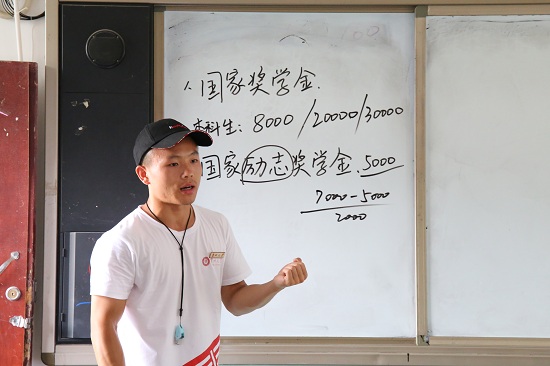 1、国家奖学金.
本科生: 8000/20000/30000
国家励志奖学金.5000
7000-5000
2000